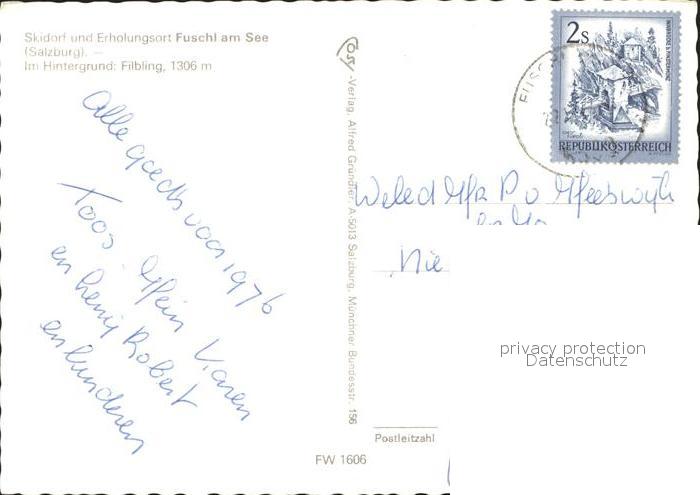 Skidorf und Erholungsort Fuschl am See
(Salzburg). —
Im Hintergrund: Filbling, 1306 m
Alle goeds voor 1976
Toos, Hein Karen
en henij Robert
en kinderen
Cosy-Verlag, Alfred Gründler, A-5013 Salzburg, Münchner Bundesstr. 156
2s
REPUBLIK ÖSTERREICH
FUSCHL
Weled
Nie
privacy protection
Datenschutz
Postleitzahl
FW 1606